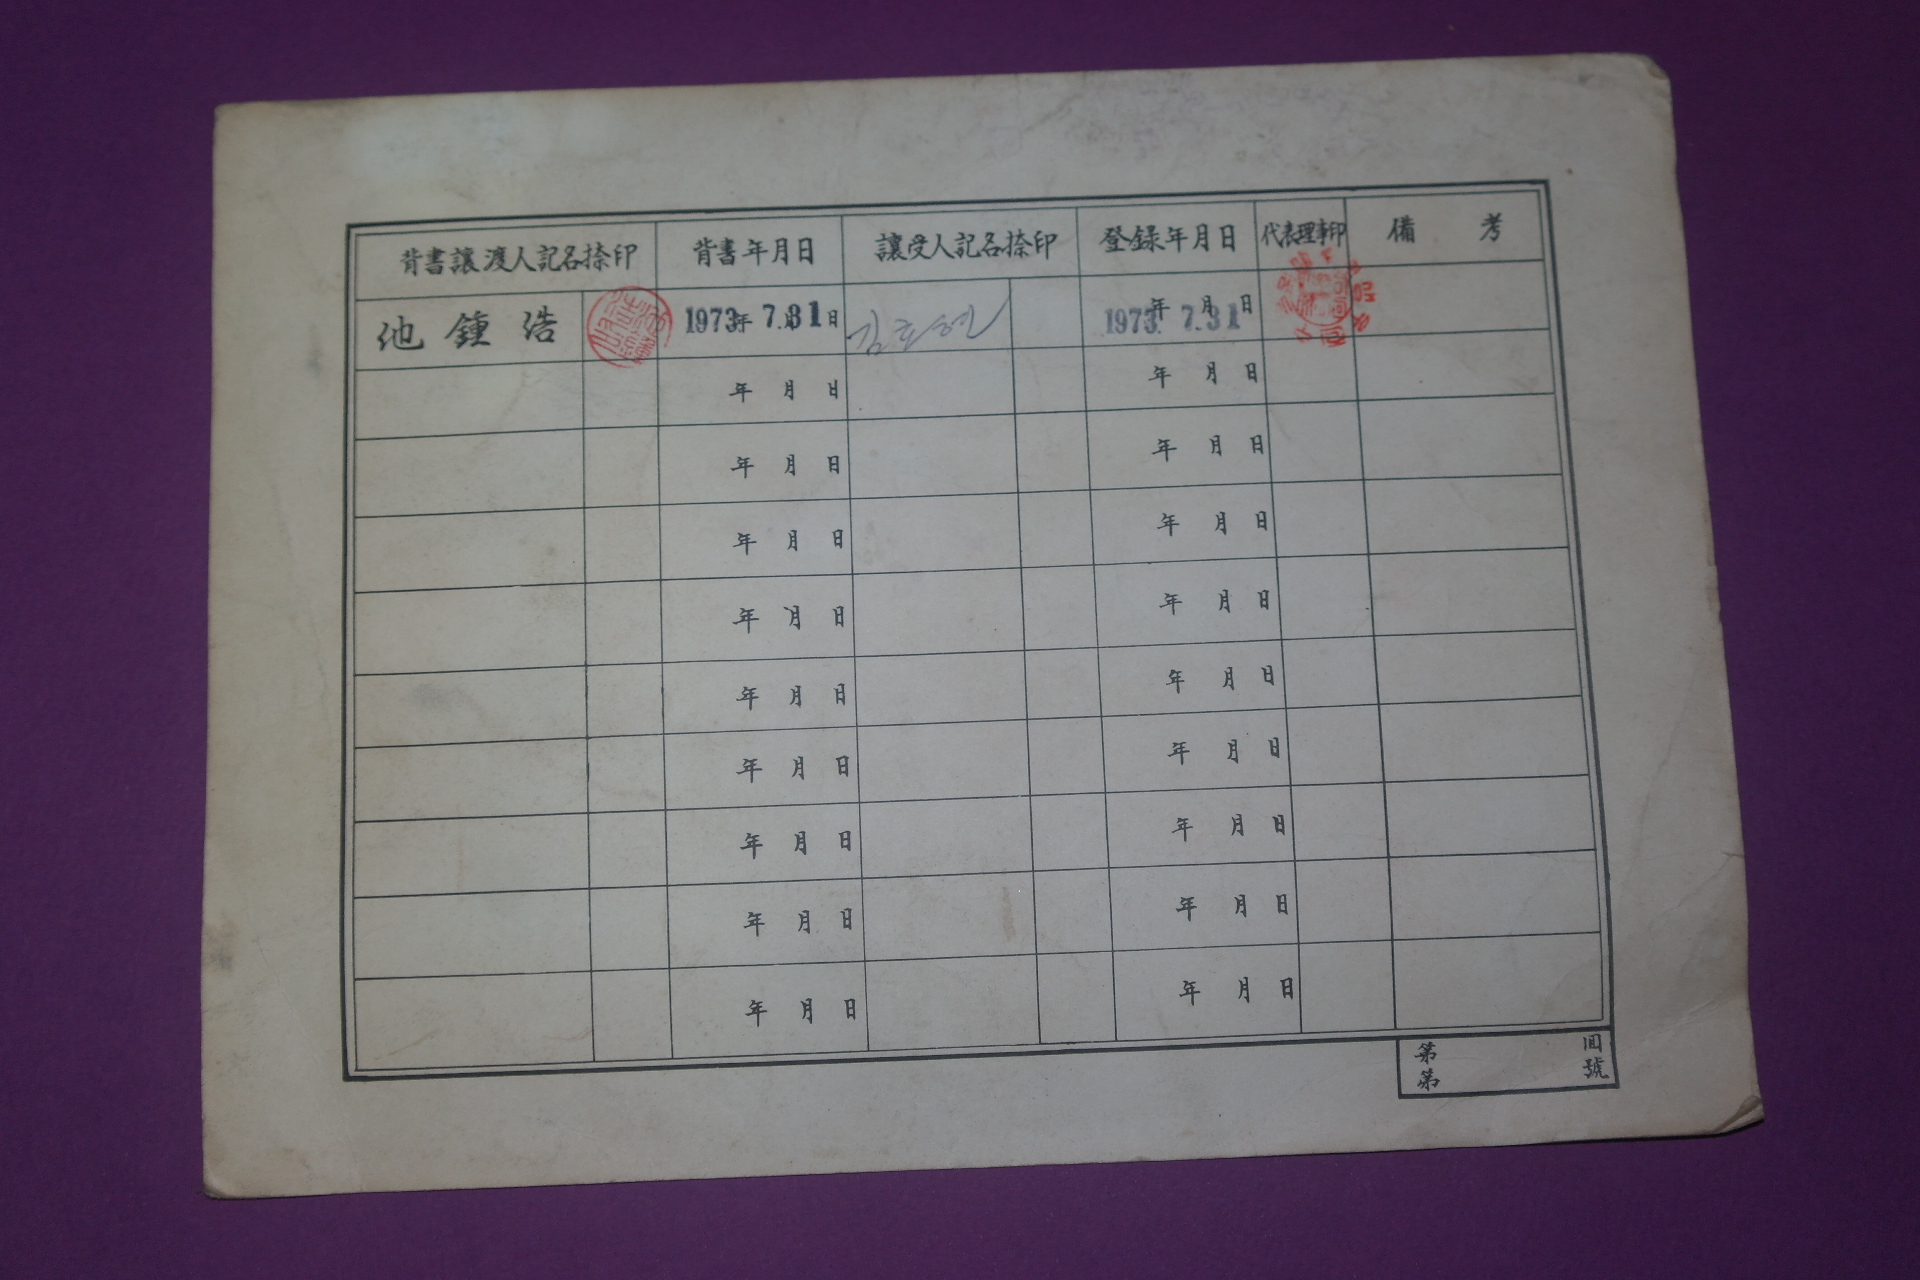 背書讓渡人記名捺印 背書年月日 讓受人記名捺印 登錄年月日 代表理事印 備考
池鍾浩 1973年 7月31日 김호연 1973年 7月31日
年 月 日 年 月 日
年 月 日 年 月 日
年 月 日 年 月 日
年 月 日 年 月 日
年 月 日 年 月 日
年 月 日 年 月 日
年 月 日 年 月 日
年 月 日 年 月 日
年 月 日 年 月 日
第 回
第 號